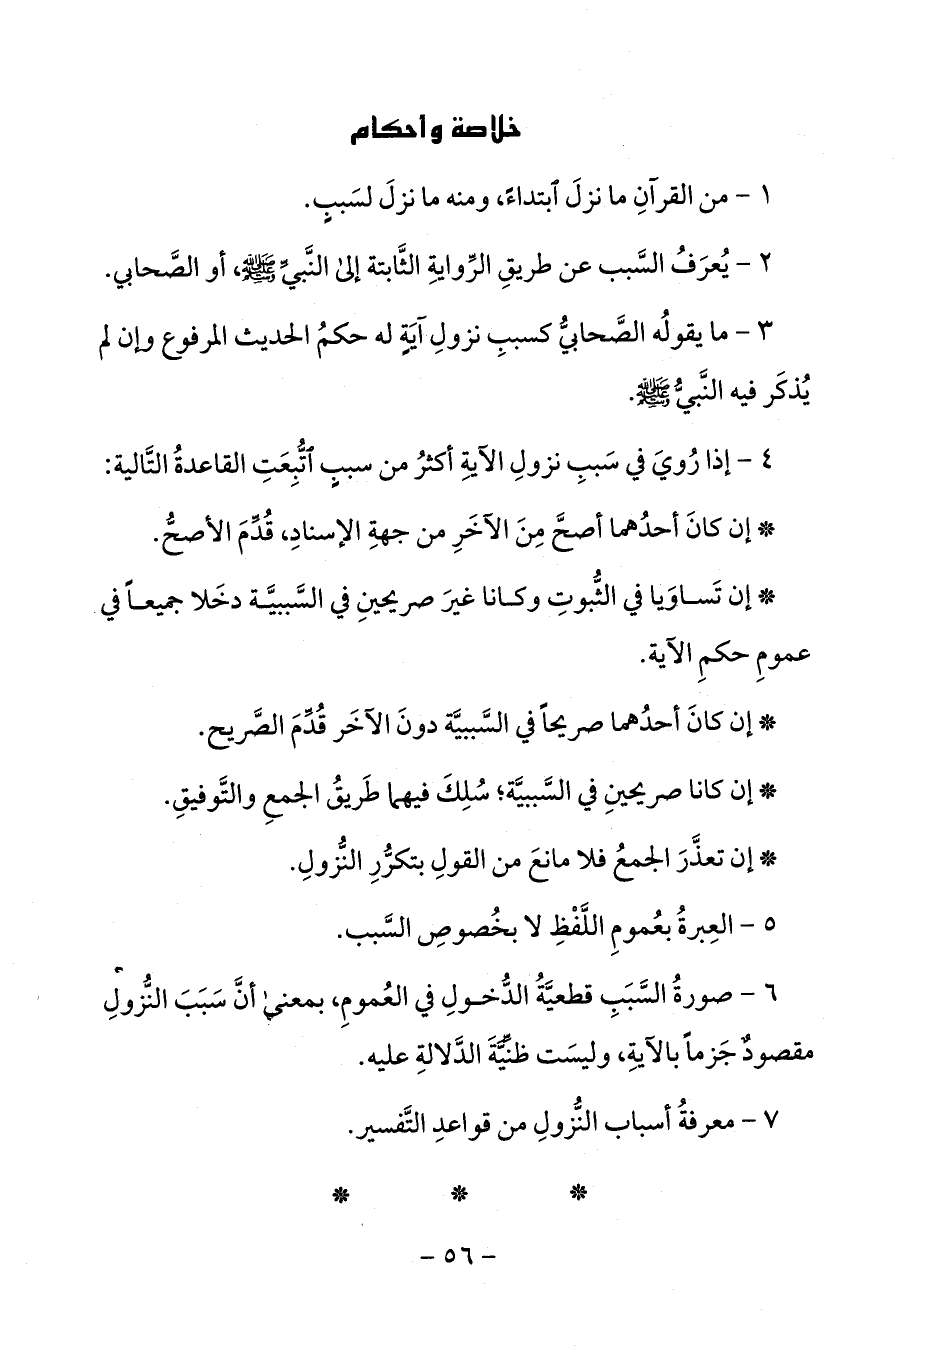 خلاصة وأحكام
١ - من القرآنِ ما نزلَ ٱبتداءً، ومنه ما نزلَ لسَببٍ.
٢ - يُعرَفُ السَّبب عن طريقِ الرِّوايةِ الثَّابتة إلىٰ النَّبيِّ ﷺ، أو الصَّحابي.
٣ - ما يقولُه الصَّحابيُّ كسببِ نزولِ آيَةٍ له حكمُ الحديث المرفوع وإن لم
يُذكَر فيه النَّبيُّ ﷺ.
٤ - إذا رُويَ في سَببِ نزولِ الآيةِ أكثرُ من سببٍ ٱتُّبِعَتِ القاعدةُ التَّالية:
* إن كانَ أحدُهما أصحَّ مِنَ الآخَرِ من جهةِ الإسنادِ، قُدِّمَ الأصحُّ.
* إن تَساوَيا في الثُّبوتِ وكانا غيرَ صريحينِ في السَّببيَّة دخَلا جميعاً في
عمومِ حكمِ الآية.
* إن كانَ أحدُهما صريحاً في السَّببيَّة دونَ الآخَر قُدِّمَ الصَّريح.
* إن كانا صريحينِ في السَّببيَّة؛ سُلِكَ فيهما طَريقُ الجمعِ والتَّوفيقِ.
* إن تعذَّرَ الجمعُ فلا مانعَ من القولِ بتكرُّرِ النُّزولِ.
٥ - العِبرةُ بعُمومِ اللَّفْظِ لا بخُصوصِ السَّبب.
٦ - صورةُ السَّبَبِ قطعيَّةُ الدُّخولِ في العُمومِ، بمعنىٰ أنَّ سَبَبَ النُّزولِ
مقصودٌ جَزماً بالآيةِ، وليسَت ظنِّيَّةَ الدَّلالةِ عليه.
٧ - معرفةُ أسباب النُّزولِ من قواعدِ التَّفسير.
* * *
- ٥٦ -